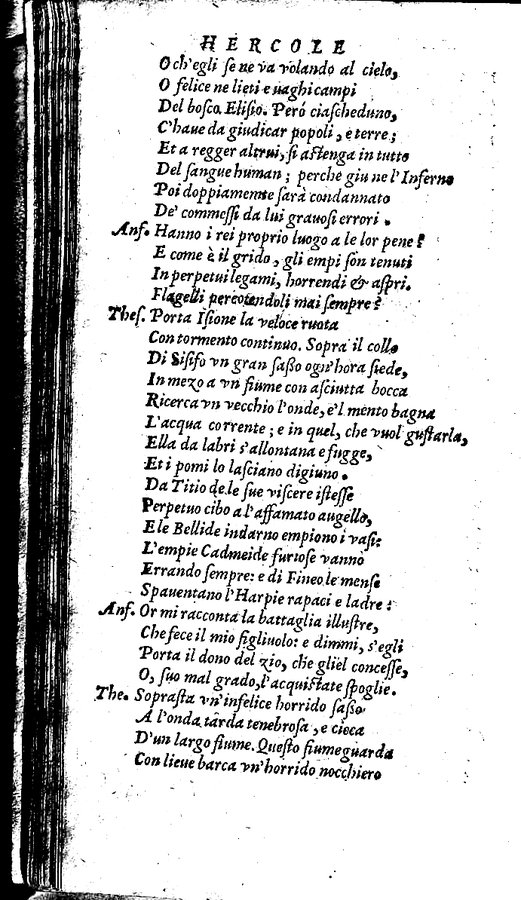 HERCOLE
O ch'egli se ne va volando al cielo,
O felice ne lieti e uaghi campi
Del bosco Elisio. Peró ciascheduno,
C'haue da giudicar popoli, e terre;
Et a regger altrui, si astenga in tutto
Del sangue human; perche giu ne l'Inferno
Poi doppiamente sarà condannato
De' commessi da lui grauosi errori.
Anf. Hanno i rei proprio luogo a le lor pene?
E come è il grido, gli empi son tenuti
In perpetui legami, horrendi & aspri.
Flagelli percotendoli mai sempre?
Thes. Porta Isione la veloce ruota
Con tormento continuo. Sopra il collo
Di Sisifo vn gran sasso ogn'hora siede,
In mezo a vn fiume con asciutta bocca
Ricerca vn vecchio l'onde, e'l mento bagna
L'acqua corrente; e in quel, che vuol gustarla,
Ella da labri s'allontana e fugge,
Et i pomi lo lasciano digiuno.
Da Titio de le sue viscere istesse
Perpetuo cibo a l'affamato augello,
E le Bellide indarno empiono i vasi:
L'empie Cadmeide furiose vanno
Errando sempre: e di Fineo le mense
Spauentano l'Harpie rapaci e ladre:
Anf. Or mi racconta la battaglia illustre,
Che fece il mio figliuolo: e dimmi, s'egli
Porta il dono del zio, che gliel concesse,
O, suo mal grado, l'acquistate spoglie.
The. Soprasta vn'infelice horrido sasso
A l'onda tarda tenebrosa, e cieca
D'un largo fiume. Questo fiume guarda
Con lieue barca vn'horrido nocchiero